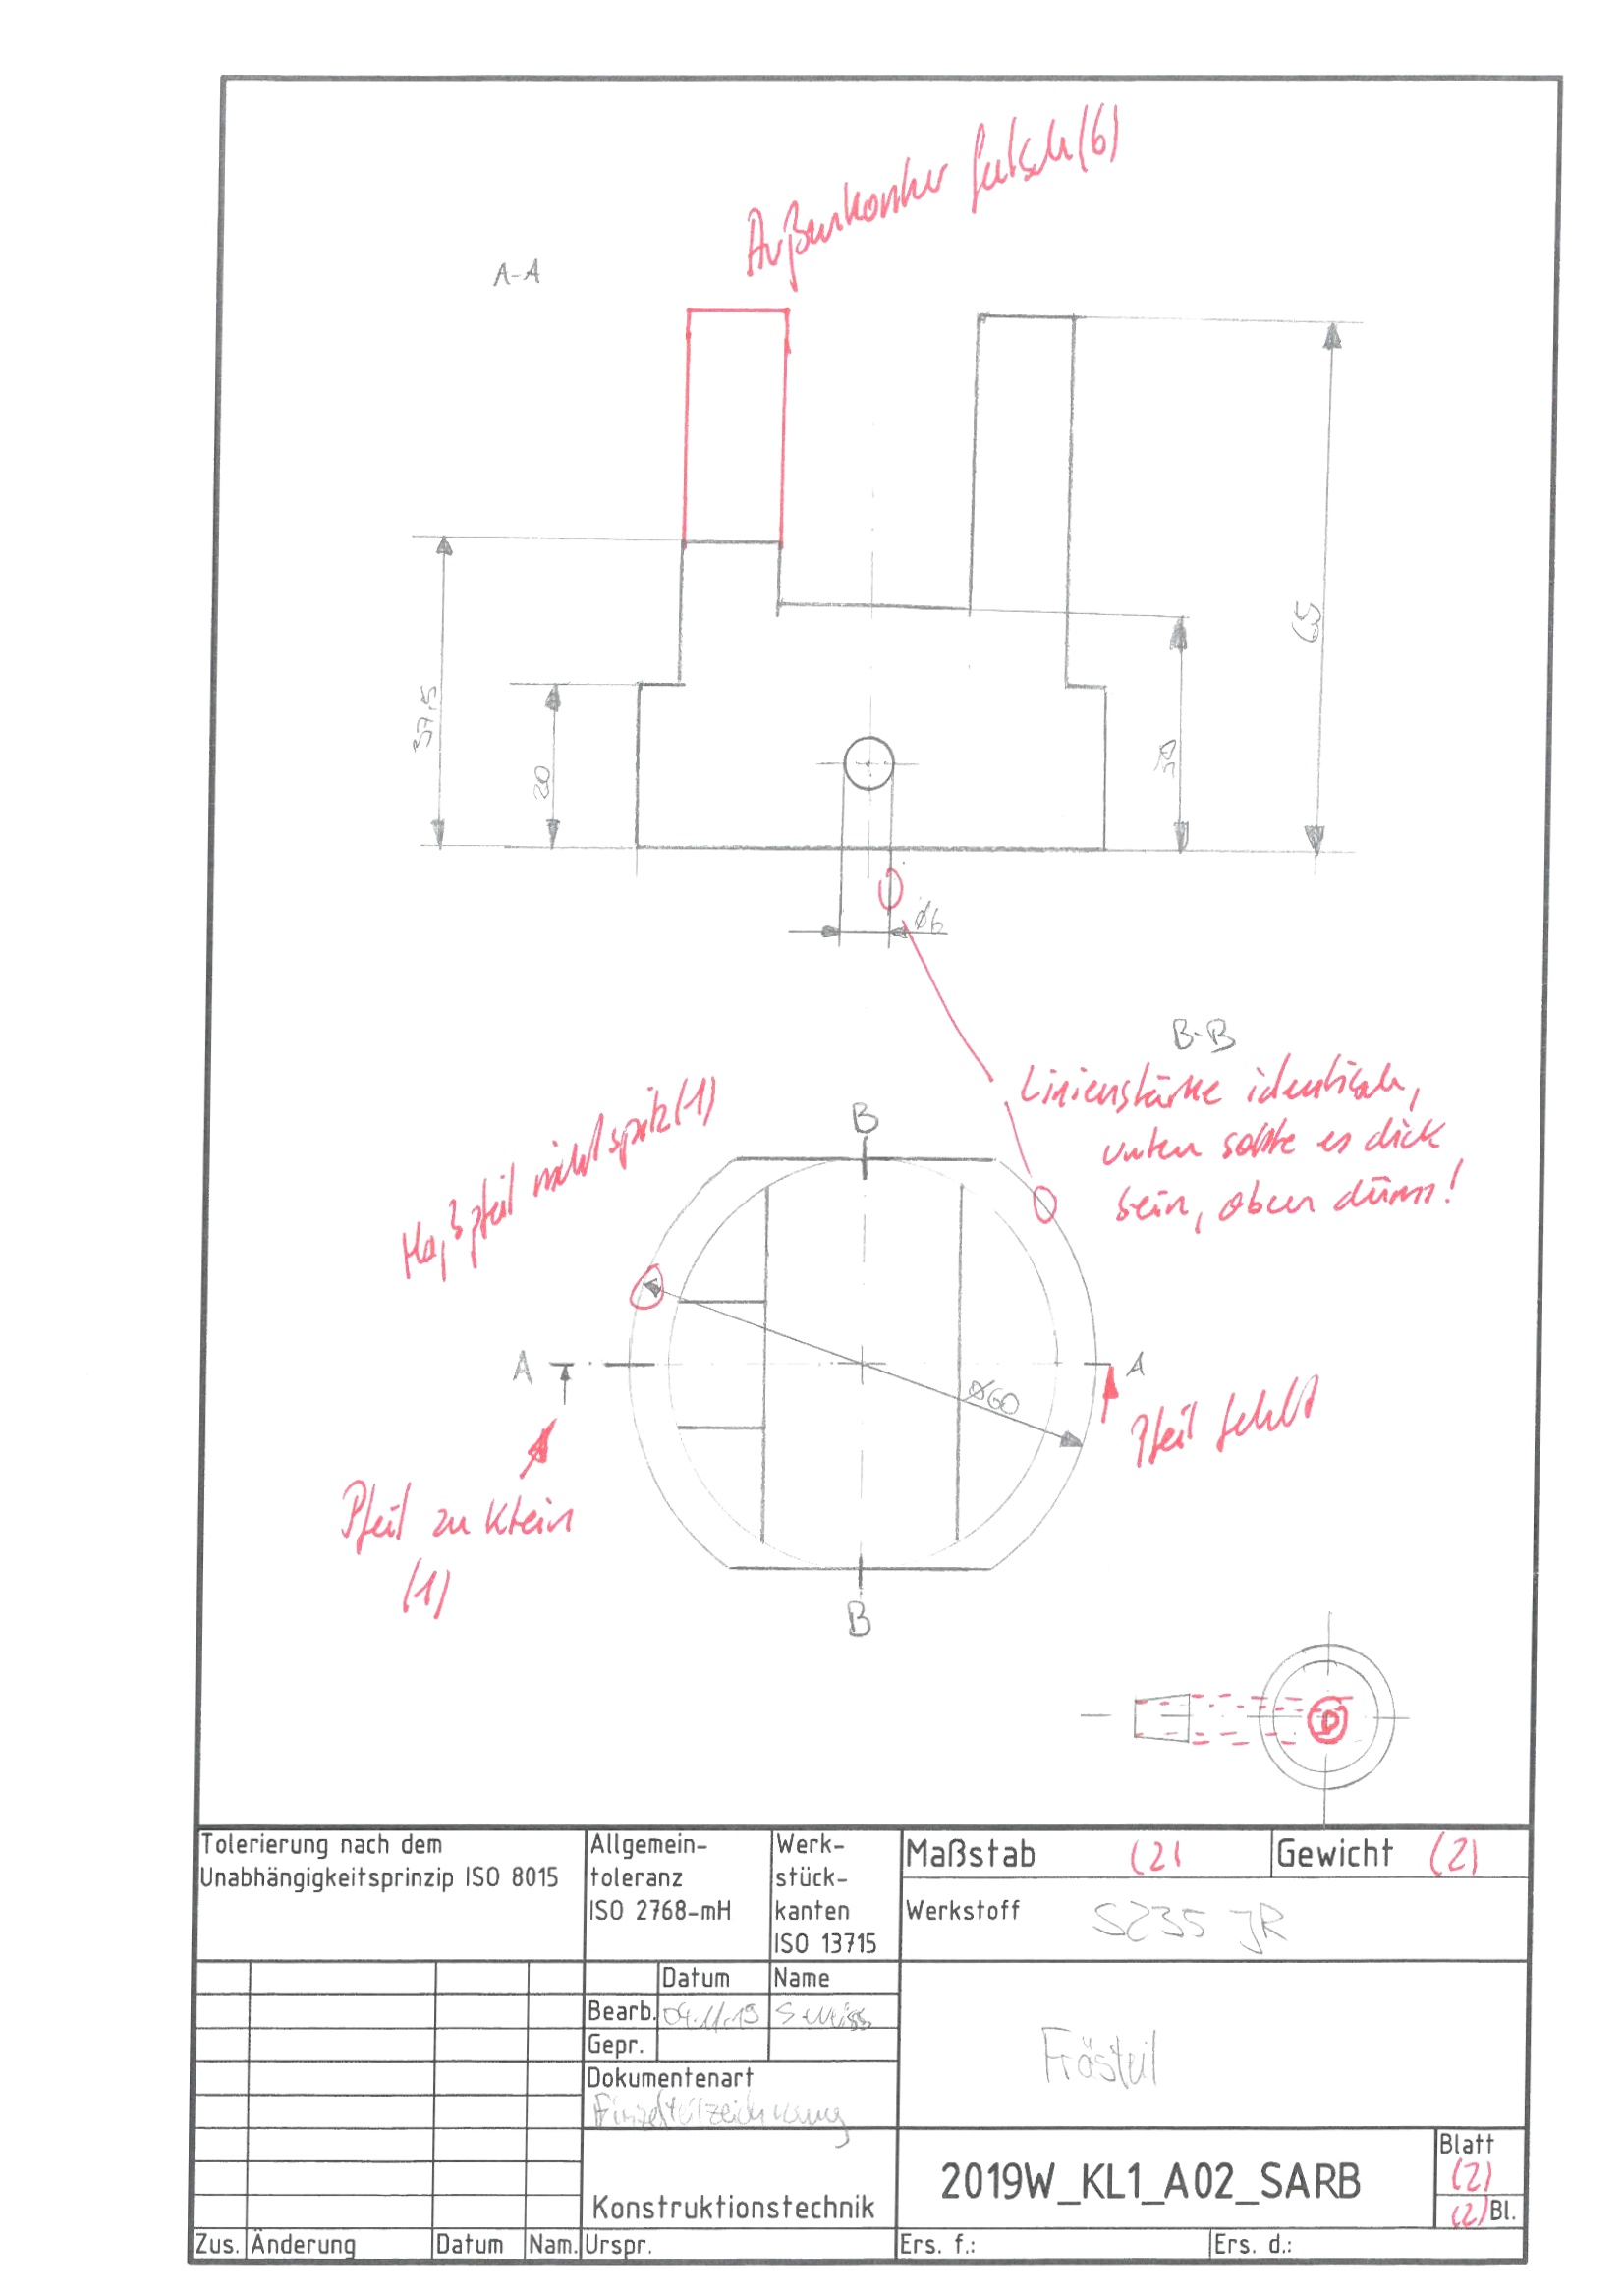 Außenkontur falsch (6)
A-A
65
37,5
20
30
Ø6
B-B
Linienstärke identisch,
unten sollte es dick
sein, oben dünn!
Maßpfeil nicht spitz (1)
B
A
A
Ø60
Pfeil fehlt
Pfeil zu klein
(1)
B
Tolerierung nach dem
Unabhängigkeitsprinzip ISO 8015
Allgemein-
toleranz
ISO 2768-mH
Werk-
stück-
kanten
ISO 13715
Maßstab (2)
Gewicht (2)
Werkstoff S235 JR
Datum
Name
Bearb. 04.11.19
Gepr.
Dokumentenart
Einzelteilzeichnung
Frästeil
Konstruktionstechnik
2019W_KL1_A02_SARB
Blatt
(2)
(2) Bl.
Zus. Änderung Datum Nam. Urspr. Ers. f.: Ers. d.: